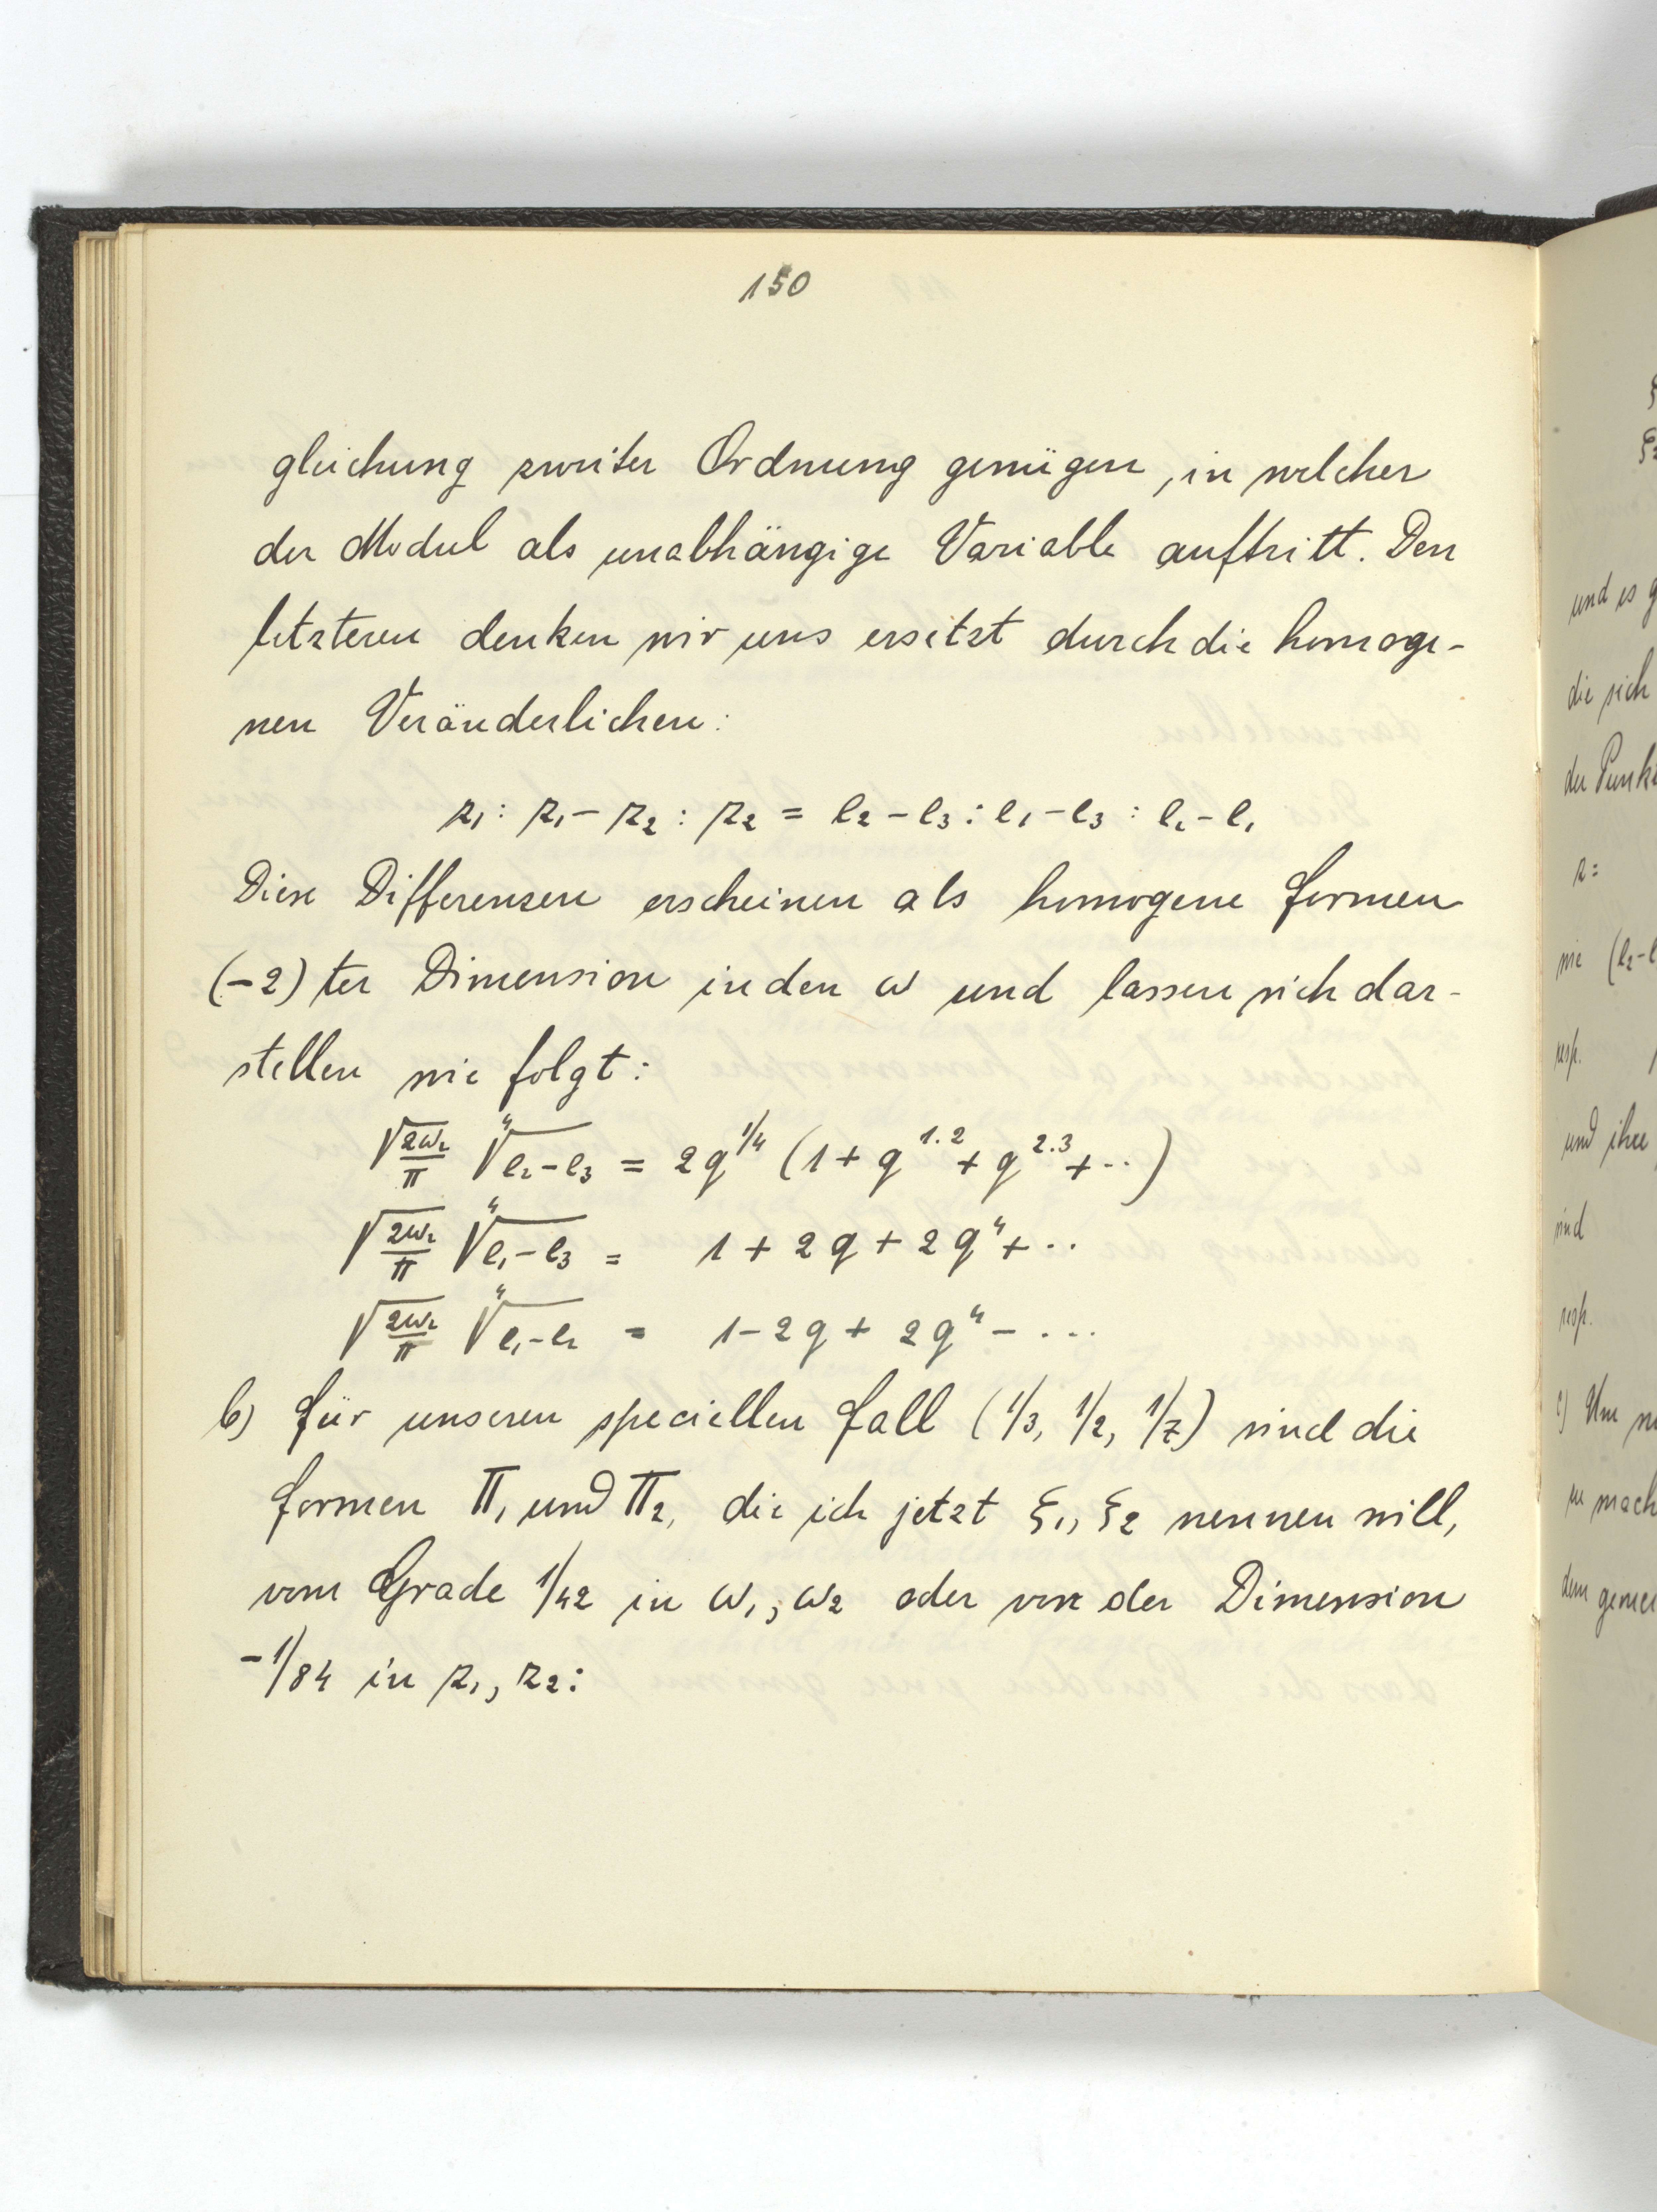 150
gleichung zweiter Ordnung genügen, in welcher
der Modul als unabhängige Variable auftritt. Den
letzteren denken wir uns ersetzt durch die homoge-
nen Veränderlichen:
z₁ : z₁ - z₂ : z₂ = e₂ - e₃ : e₁ - e₃ : e₂ - e₁
Diese Differenzen erscheinen als homogene Formen
(-2)ter Dimension in den ω und lassen sich dar-
stellen wie folgt:
√(2ω₂/π) ∜(e₂-e₃) = 2q^1/4 (1 + q^1.2 + q^2.3 + ..)
√(2ω₂/π) ∜(e₁-e₃) = 1 + 2q + 2q⁴ + ..
√(2ω₂/π) ∜(e₁-e₂) = 1 - 2q + 2q⁴ - ...
b) Für unseren speciellen Fall (1/3, 1/2, 1/7) sind die
Formen Π₁ und Π₂, die ich jetzt ξ₁, ξ₂ nennen will,
vom Grade 1/42 in ω₁, ω₂ oder von der Dimension
-1/84 in z₁, z₂:
und es g
die sich
der Punk
z =
wie (e₂-e
resp.
und ihre
sind
resp.
c) Um
zu mach
dem gemei